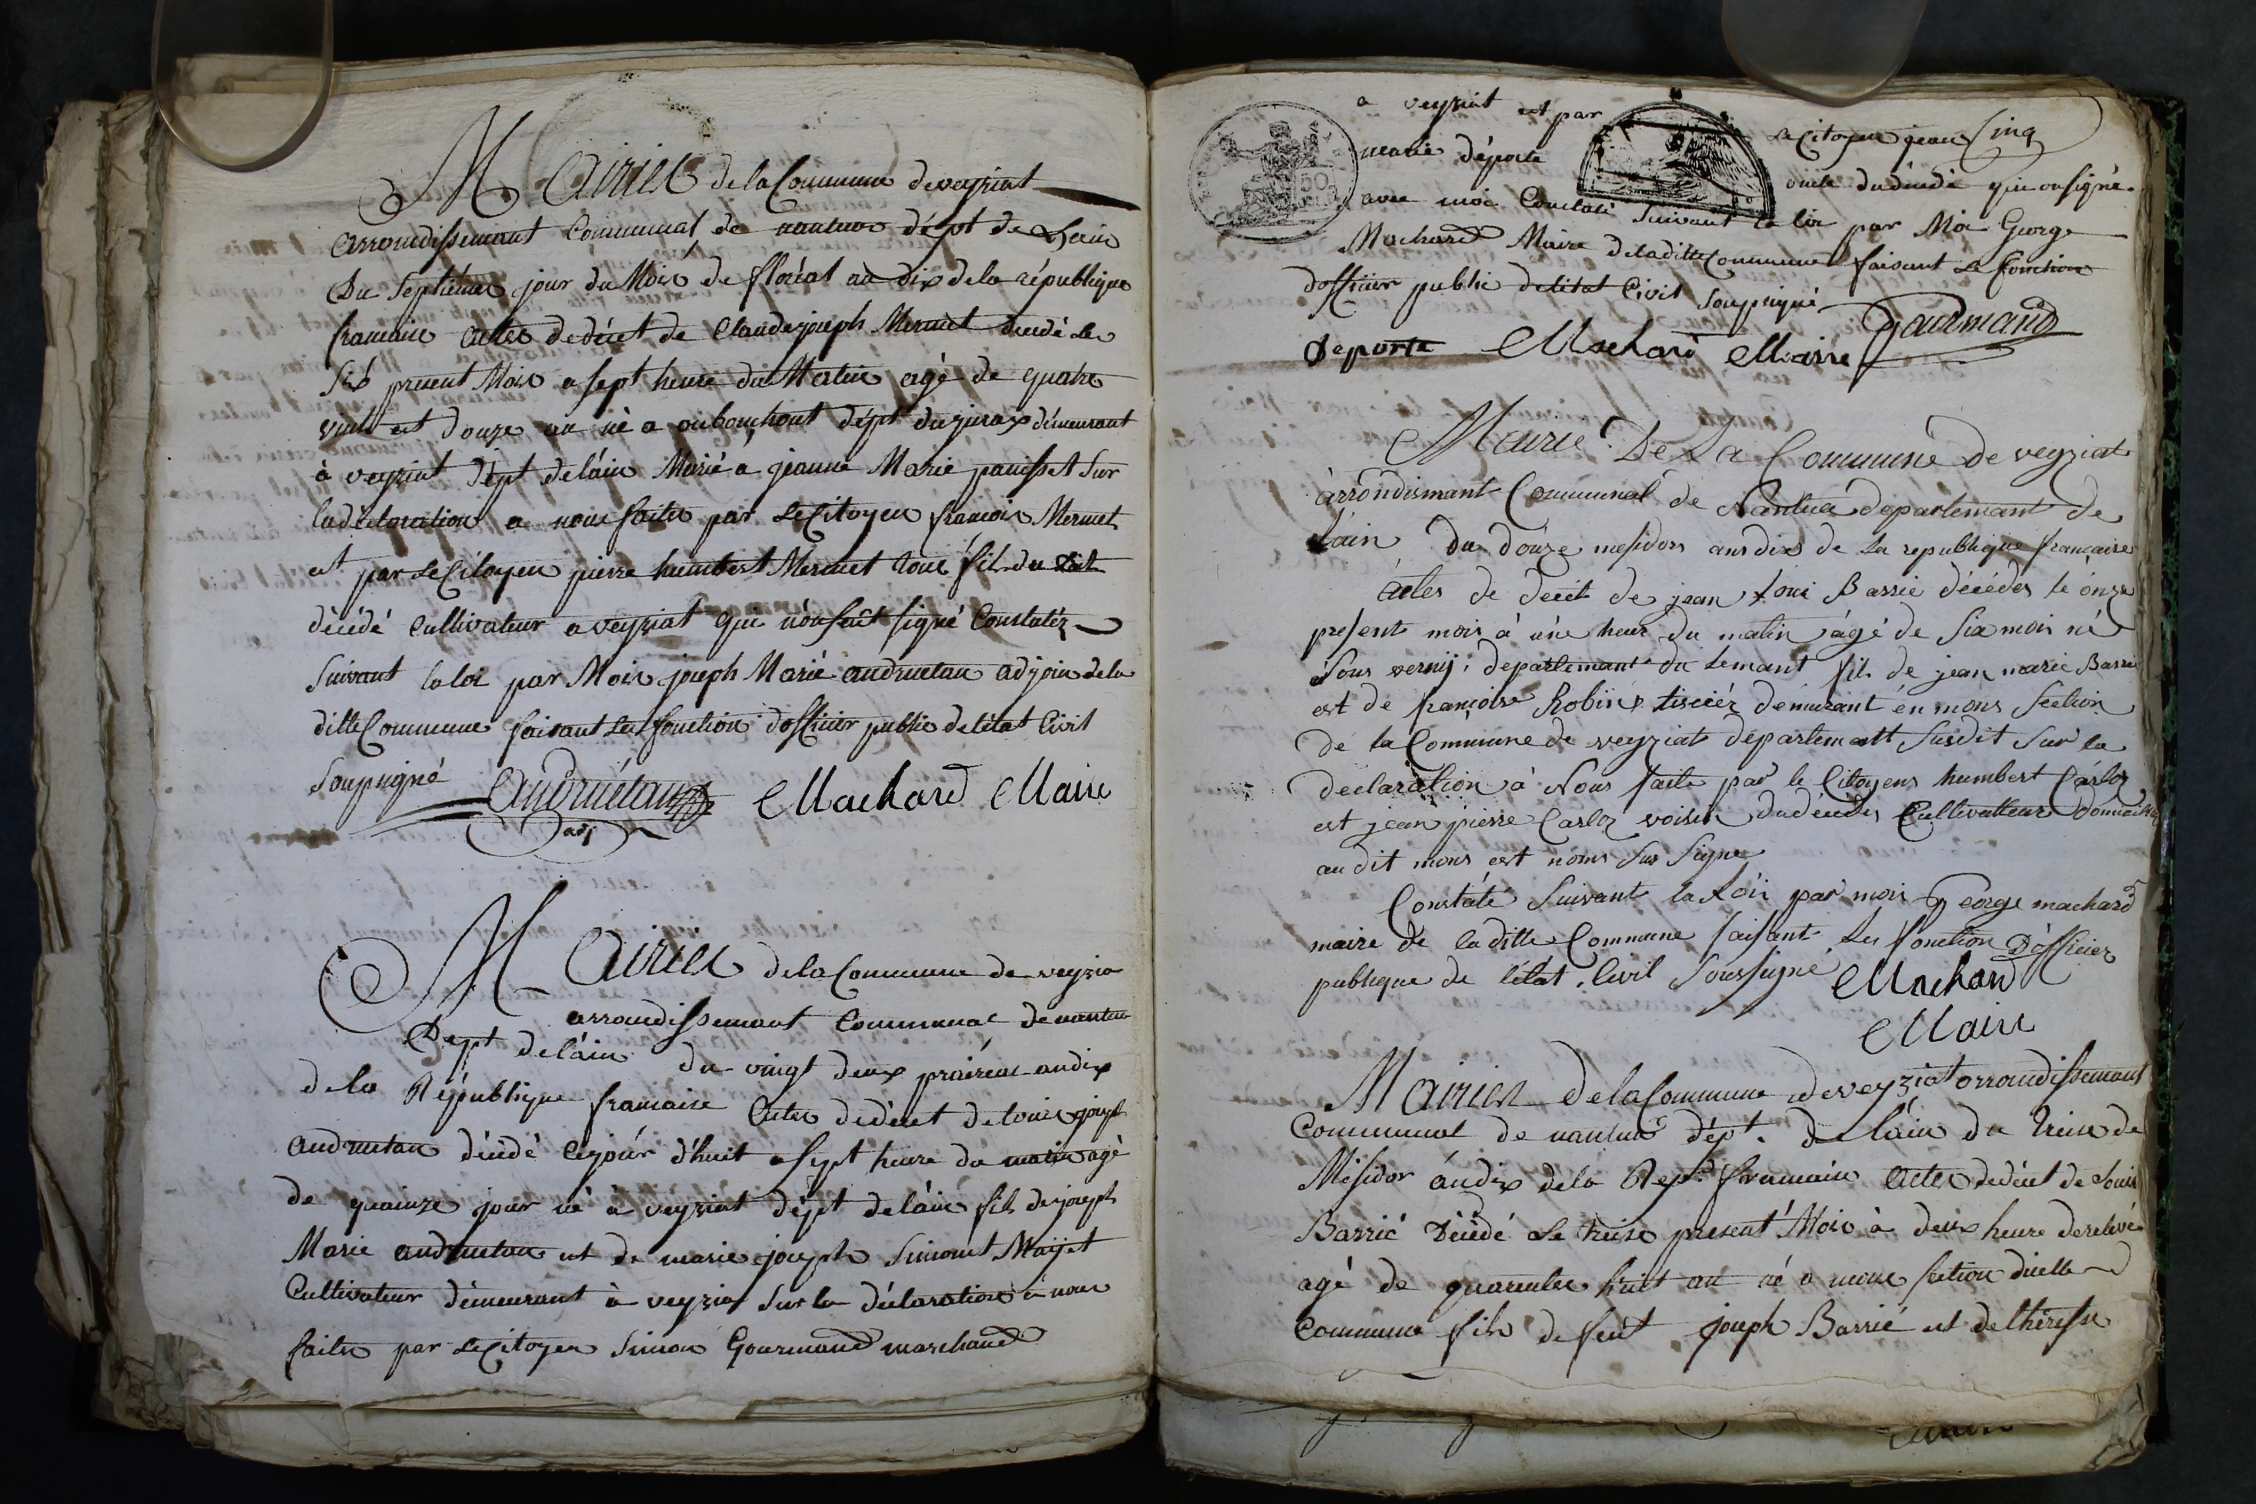 Mairies de la Commune de veyziat
arrondissement Communal de nantua dépt de Lain
Du Septiéme jour du Mois de floréal an dix de la république
francaise Actes de décet de Claude joseph Mermet décédé le
Six présent Mois a sept heure du Matin agé de quatre
vint et douze an né a oubouchout dépt du jurax démeurant
à veyziat dépt de láin Marié a jeanne Marie panisset Sur
la déclaration a nous faite par le Citoyen francois Mermet
et par le Citoyen pierre humbert Mermet tous fils du dit
décédé Cultivateur a veyziat qui nonsent signé Constatéz
Suivant la loi par Moi joseph Marié andruetan adjoin de la
ditte Commune faisant les fonction dofficier public de létat Civil
Soupsigné
andruétan
adj
Machard Maire
Mairies de la Commune de veyzia
arrondissement Communal de nantua
Dept de láin du vingt deux praireal an dix
de la République francaise Actes de décet de louis joseph
andruetan décédé cejour d'huit a sept heure du matin agé
de quainze jour né à veyziat dépt de láin fils de joseph
Marie andruetan et de marie joseph Simonet Maÿet
Cultivateur démeurant à veyzia Sur la déclaration à nous
faite par le Citoyen Simon Gourmand marchand
a veyziat et par le Citoyen jean Cinq
marie déporte oncle du décédé qui onsigné
avec moi Constaté Suivant la loi par Moi George
Machard Maire de la ditte Commune faisant le fonction
dofficier public de létat Civil Soupsigné
Deporte Machard Maire Gourmand
50
Meurie De La Commune de veyziat
àrrondismant Communal de Nantua departemant de
Lain Du douze mesidor ans dix de la republique francaise
àctes de décét de jean Loui Barrie décédés le ónze
present mois à ùne heur du matin àgé de Six mois né
Sous vernij departemant du Lemant fils de jean marie Barrie
est de françoise Robin tisciér démurant én mons Section
de la Commune de veyziat departematt Susdit Sur la
declaration à Nous faite par le Citoyens humbert Carloz
est jean pierre Carloz voisin du décédés Cultivatteur
au dit mons est noms Sus Signe
Constáté Suivant la Loii par moi George machard
maire de la ditte Commune faisant les fonction D'officier
publique de létat Civil Soussigné Machard
Maire
Mairies de la Commune de veyziat arrondissement
Communal de nantua dépt. de láin du treize de
Mésidor ándix de la Rep. francaise Actes de décet de Louis
Barrié Décédé le treise présent Mois à deux heure de relevé
agé de quarentes huit an né a mons section dicelle
Commune fils de feut joseph Barrié et de thérésse